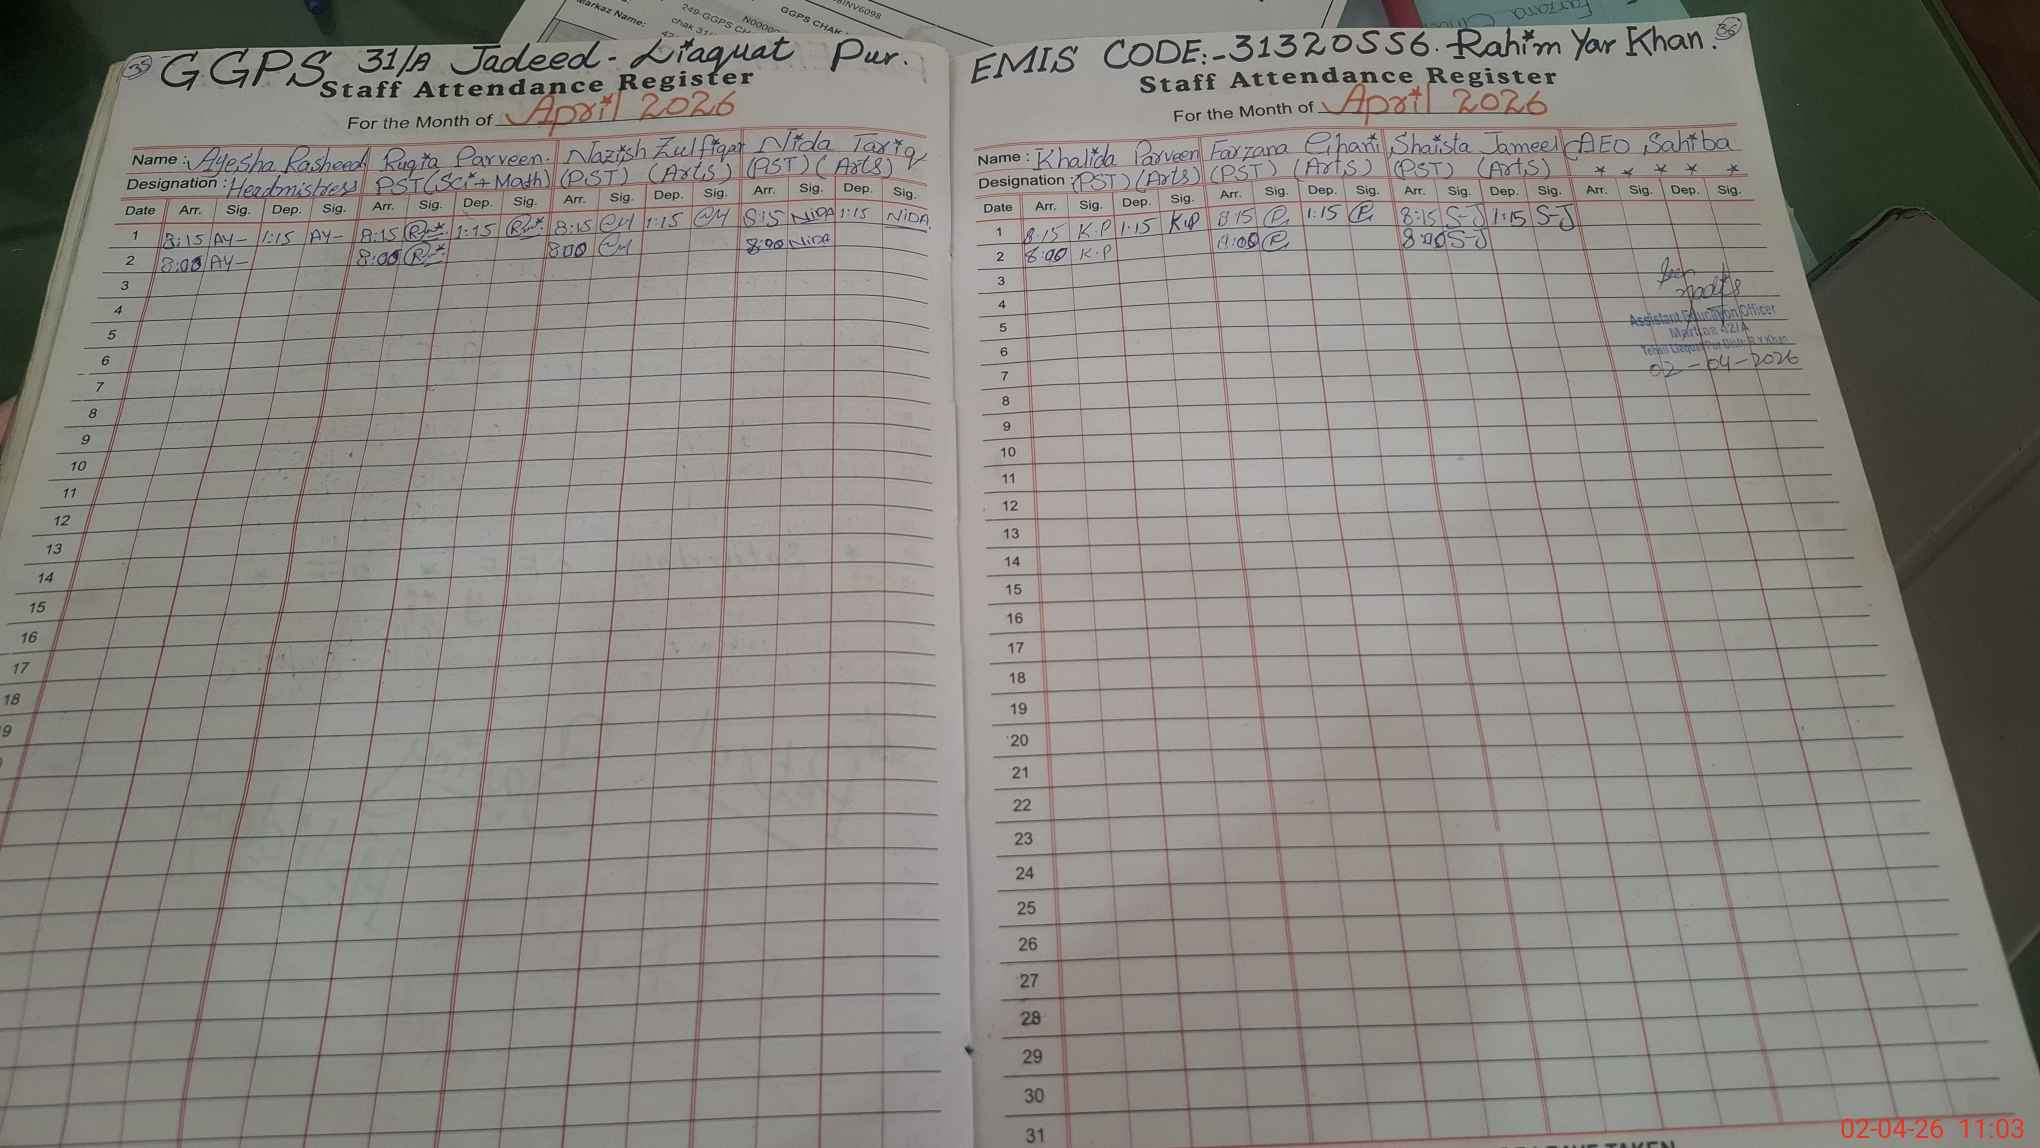 Markaz Name:
249-GGPS CH
chak 31
N0000
GGPS CHAK
INV6098
35 GGPS 31/A Jadeed - Liaquat Pur.
Staff Attendance Register
For the Month of April 2026
Name : Ayesha Rasheed Ruqia Parveen. Nazish Zulfiqar Nida Tariq
Designation : Headmistress PST (Sci+Math) (PST) (Arts) (PST) (Arts)
Date Arr. Sig. Dep. Sig. Arr. Sig. Dep. Sig. Arr. Sig. Dep. Sig. Arr. Sig. Dep. Sig.
1 8:15 AY- 1:15 AY- 8:15 1:15 8:15 1:15 8:15 NIDA 1:15 NIDA
2 8:00 AY- 8:00 8:00 8:00 NIDA
3
4
5
6
7
8
9
10
11
12
13
14
15
16
17
18
9
EMIS CODE:-31320556. Rahim Yar Khan. 36
Staff Attendance Register
For the Month of April 2026
Name : Khalida Parveen Farzana Ghani Shaista Jameel AEO Sahiba
Designation : (PST) (Arts) (PST) (Arts) (PST) (Arts) * * * * *
Date Arr. Sig. Dep. Sig. Arr. Sig. Dep. Sig. Arr. Sig. Dep. Sig. Arr. Sig. Dep. Sig.
1 8:15 K.P 1:15 K.P 8:15 1:15 8:15 S-J 1:15 S-J
2 8:00 K.P 8:00 S-J
3
4
5
6
7
8
9
10
11
12
13
14
15
16
17
18
19
20
21
22
23
24
25
26
27
28
29
30
31
Assistant Education Officer
Markaz 42/A
02-04-2026
02-04-26 11:03